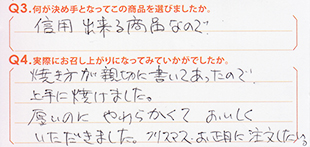 Q3.何が決め手となってこの商品を選びましたか。
信用出来る商品なので
Q4.実際にお召し上がりになってみていかがでしたか。
焼き方が親切に書いてあったので
上手に焼けました。
厚いのにやわらかくておいしく
いただきました。クリスマス・お正月に注文したい。